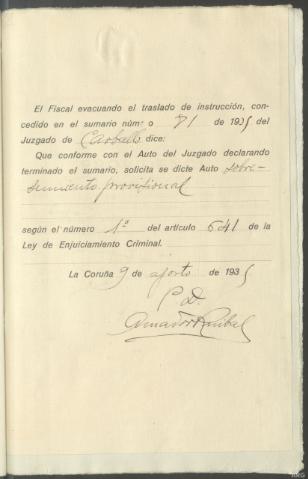 El Fiscal evacuando el traslado de instrucción, con-
cedido en el sumario núm. o 71 de 1935 del
Juzgado de Carballo dice:
Que conforme con el Auto del Juzgado declarando
terminado el sumario, solicita se dicte Auto sobre-
seimiento provisional
según el número 1º del artículo 641 de la
Ley de Enjuiciamiento Criminal.
La Coruña 9 de agosto de 1935
P. D.
Amador